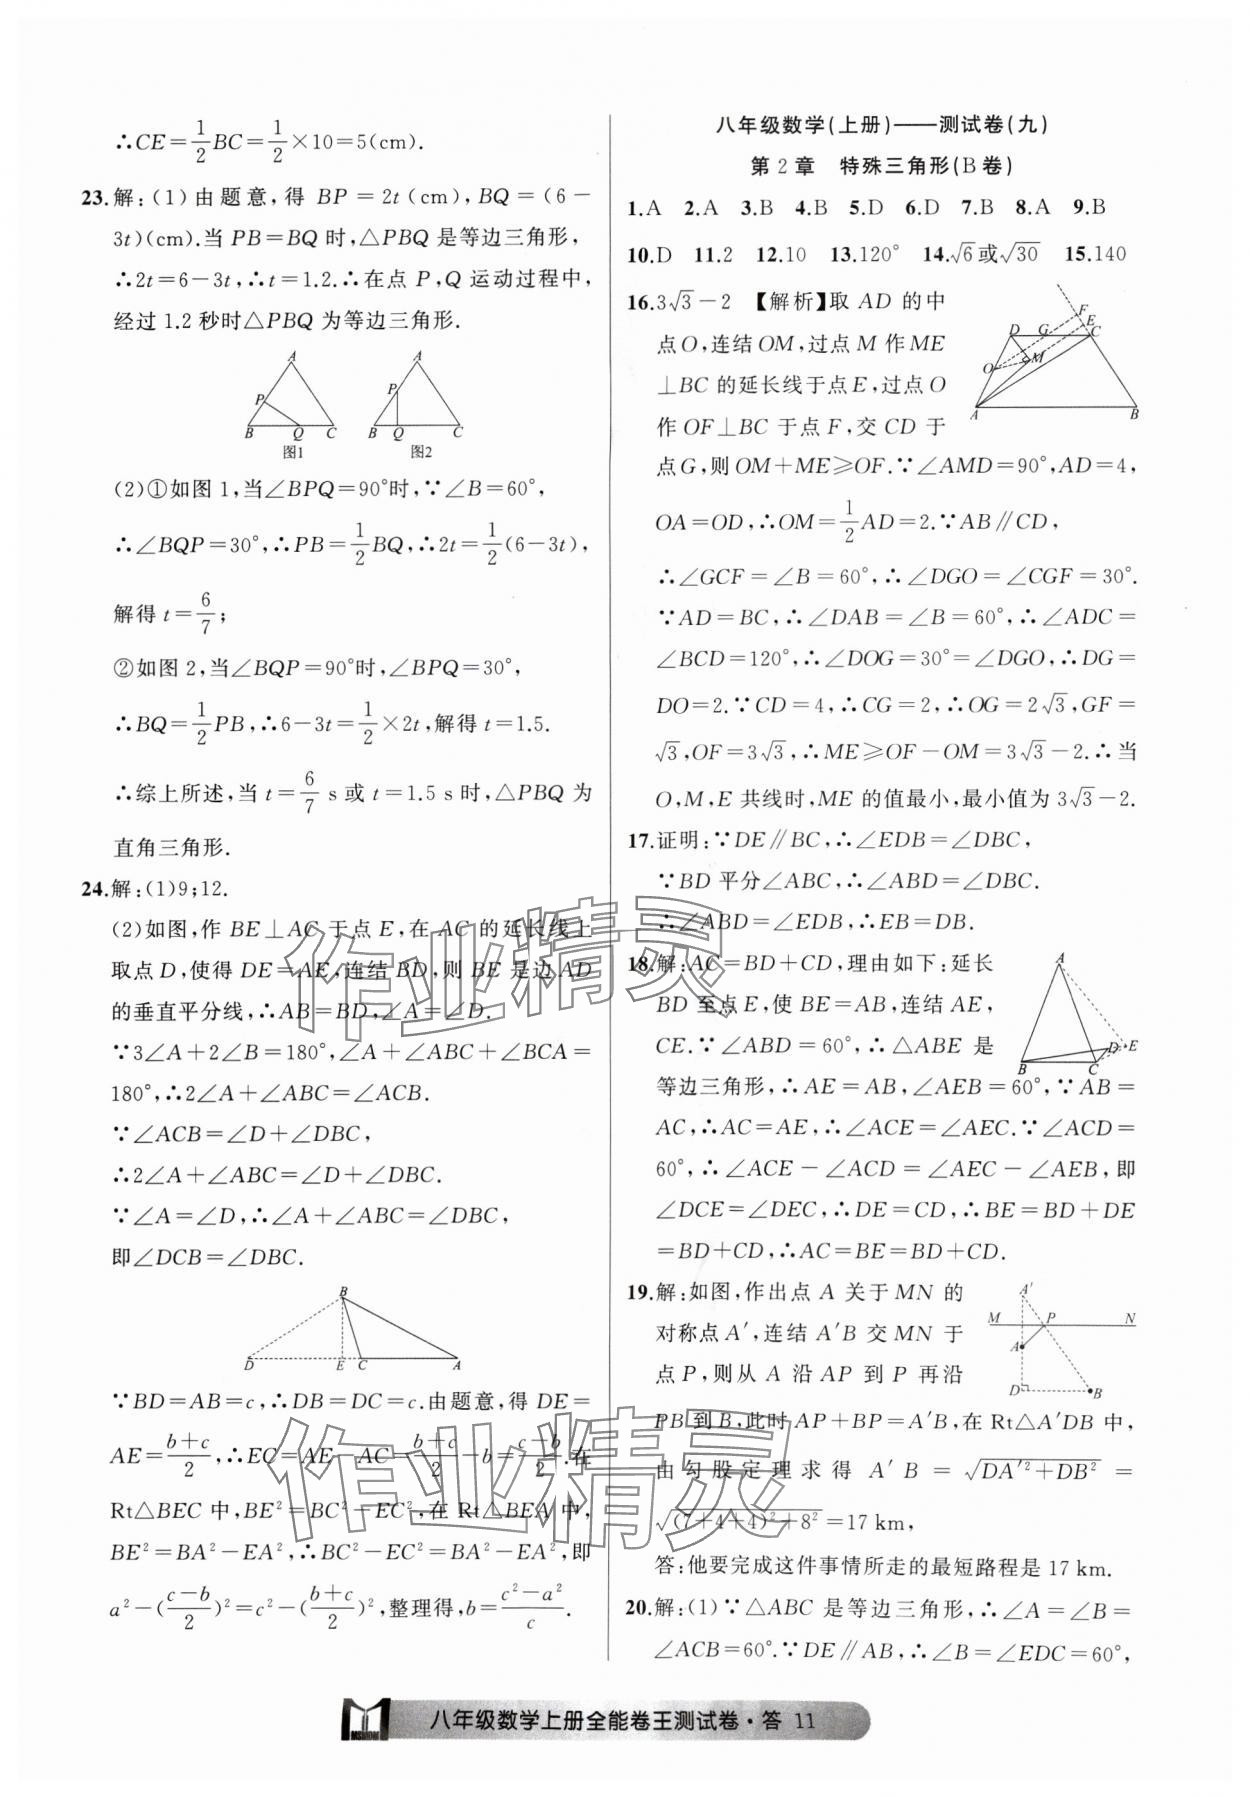 ∴CE=1/2 BC=1/2×10=5(cm).
23.解:(1)由题意,得 BP=2t(cm),BQ=(6-
3t)(cm).当PB=BQ时,△PBQ是等边三角形,
∴2t=6-3t,∴t=1.2.∴在点P,Q运动过程中,
经过1.2秒时△PBQ为等边三角形.
A
P
B Q C
图1
A
P
B Q C
图2
(2)①如图1,当∠BPQ=90°时,∵∠B=60°,
∴∠BQP=30°,∴PB=1/2 BQ,∴2t=1/2(6-3t),
解得t=6/7;
②如图2,当∠BQP=90°时,∠BPQ=30°,
∴BQ=1/2 PB,∴6-3t=1/2×2t,解得t=1.5.
∴综上所述,当t=6/7 s或t=1.5 s时,△PBQ为
直角三角形.
24.解:(1)9;12.
(2)如图,作BE⊥AC于点E,在AC的延长线上
取点D,使得DE=AE,连结BD,则BE是边AD
的垂直平分线,∴AB=BD,∠A=∠D.
∵3∠A+2∠B=180°,∠A+∠ABC+∠BCA=
180°,∴2∠A+∠ABC=∠ACB.
∵∠ACB=∠D+∠DBC,
∴2∠A+∠ABC=∠D+∠DBC.
∵∠A=∠D,∴∠A+∠ABC=∠DBC,
即∠DCB=∠DBC.
B
D E C A
∵BD=AB=c,∴DB=DC=c.由题意,得DE=
AE=(b+c)/2,∴EC=AE-AC=(b+c)/2-b=(c-b)/2.在
Rt△BEC中,BE²=BC²-EC²,在Rt△BEA中,
BE²=BA²-EA²,∴BC²-EC²=BA²-EA²,即
a²-((c-b)/2)²=c²-((b+c)/2)²,整理得,b=(c²-a²)/c.
八年级数学(上册)——测试卷(九)
第2章 特殊三角形(B卷)
1.A 2.A 3.B 4.B 5.D 6.D 7.B 8.A 9.B
10.D 11.2 12.10 13.120° 14.√6或√30 15.140
16.3√3-2 【解析】取AD的中
点O,连结OM,过点M作ME
⊥BC的延长线于点E,过点O
作OF⊥BC于点F,交CD于
F
E
D G C
O M
A B
点G,则OM+ME≥OF.∵∠AMD=90°,AD=4,
OA=OD,∴OM=1/2 AD=2.∵AB∥CD,
∴∠GCF=∠B=60°,∴∠DGO=∠CGF=30°.
∵AD=BC,∴∠DAB=∠B=60°,∴∠ADC=
∠BCD=120°,∴∠DOG=30°=∠DGO,∴DG=
DO=2.∵CD=4,∴CG=2,∴OG=2√3,GF=
√3,OF=3√3,∴ME≥OF-OM=3√3-2.∴当
O,M,E共线时,ME的值最小,最小值为3√3-2.
17.证明:∵DE∥BC,∴∠EDB=∠DBC,
∵BD平分∠ABC,∴∠ABD=∠DBC.
∴∠ABD=∠EDB,∴EB=DB.
18.解:AC=BD+CD,理由如下:延长
BD至点E,使BE=AB,连结AE,
CE.∵∠ABD=60°,∴△ABE是
A
B C D E
等边三角形,∴AE=AB,∠AEB=60°,∵AB=
AC,∴AC=AE,∴∠ACE=∠AEC.∵∠ACD=
60°,∴∠ACE-∠ACD=∠AEC-∠AEB,即
∠DCE=∠DEC,∴DE=CD,∴BE=BD+DE
=BD+CD,∴AC=BE=BD+CD.
19.解:如图,作出点A关于MN的
对称点A′,连结A′B交MN于
点P,则从A沿AP到P再沿
A′
M P N
A
D B
PB到B,此时AP+BP=A′B,在Rt△A′DB中,
由勾股定理求得A′B=√(DA′²+DB²)=
√((7+4+4)²+8²)=17 km,
答:他要完成这件事情所走的最短路程是17 km.
20.解:(1)∵△ABC是等边三角形,∴∠A=∠B=
∠ACB=60°.∵DE∥AB,∴∠B=∠EDC=60°,
作业精灵
作业精灵
八年级数学上册全能卷王测试卷·答 11